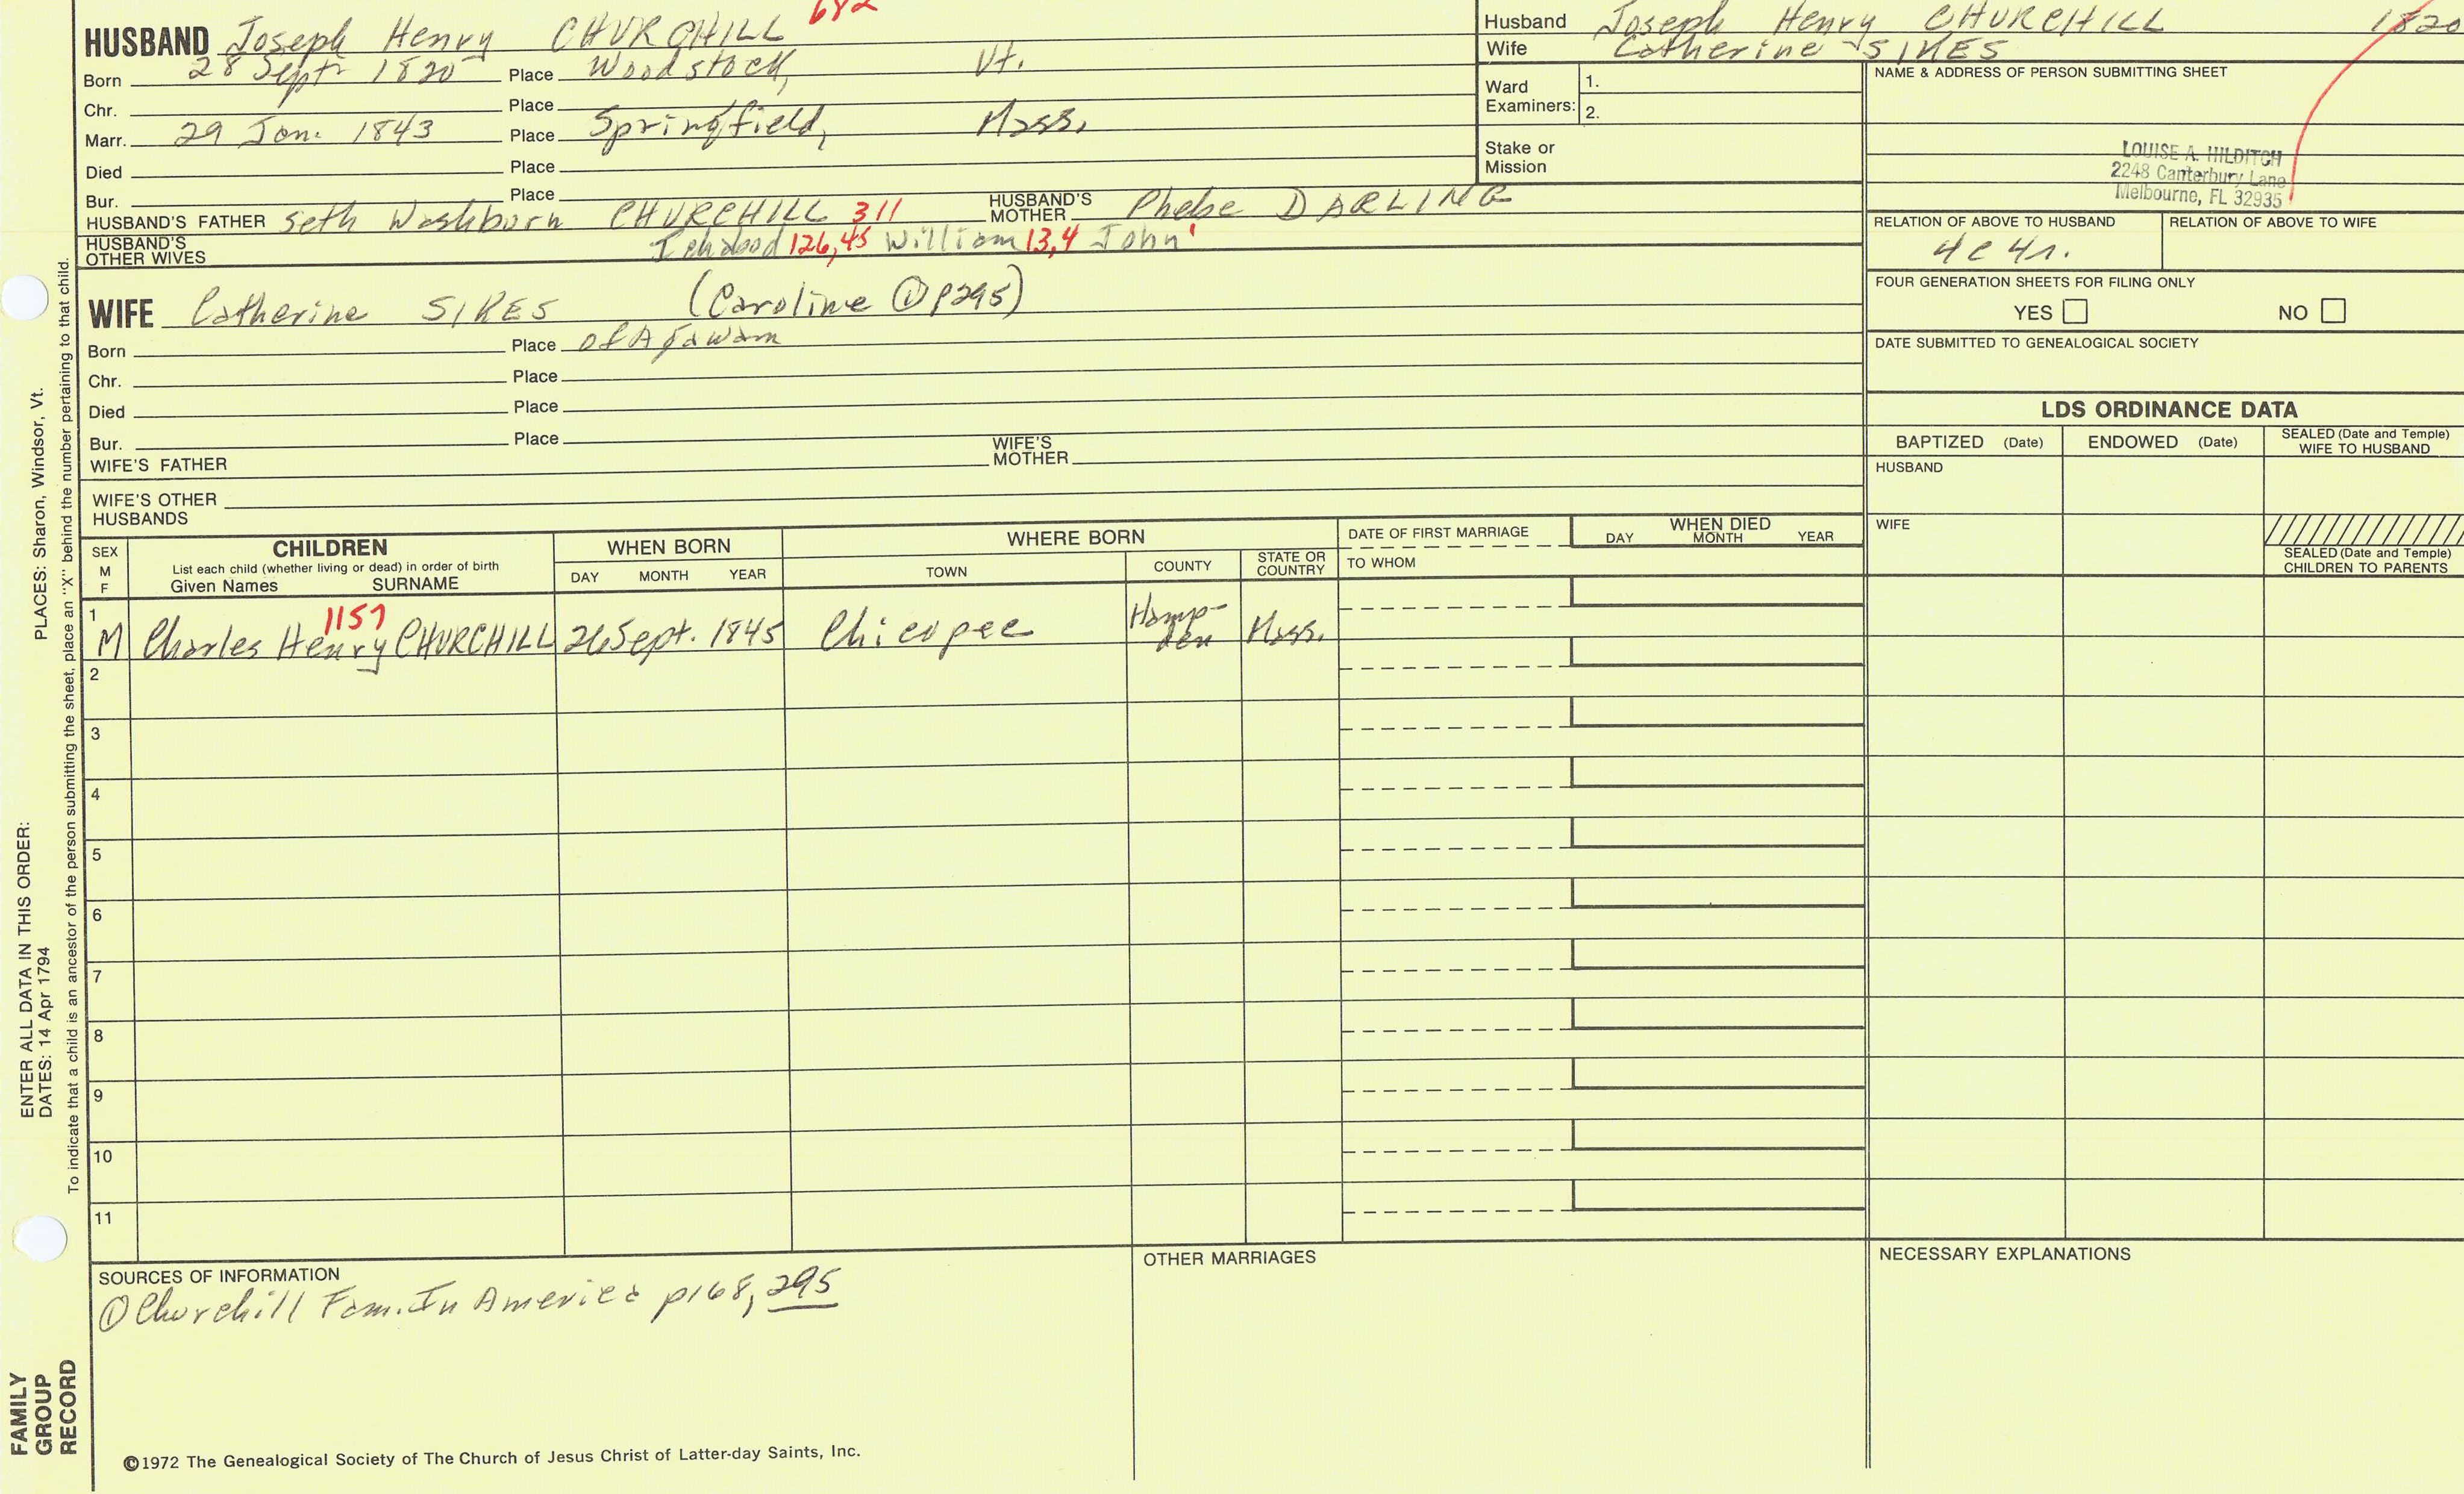 682
HUSBAND Joseph Henry CHURCHILL
Born 28 Sept 1820 Place Woodstock, Vt.
Chr. Place
Marr. 29 Jan. 1843 Place Springfield, Mass.
Died Place
Bur. Place
HUSBAND'S FATHER Seth Washburn CHURCHILL 311 HUSBAND'S MOTHER Phebe DARLING
HUSBAND'S OTHER WIVES
126, 45 William 13,4 John 1
WIFE Catherine SIKES (Caroline ① p295)
Born Place of Agawam
Chr. Place
Died Place
Bur. Place
WIFE'S FATHER WIFE'S MOTHER
WIFE'S OTHER HUSBANDS
Husband Joseph Henry CHURCHILL 1820
Wife Catherine SIKES
Ward Examiners: 1.
2.
Stake or Mission
NAME & ADDRESS OF PERSON SUBMITTING SHEET
LOUISE A. HILDITCH
2248 Canterbury Lane
Melbourne, FL 32935
RELATION OF ABOVE TO HUSBAND RELATION OF ABOVE TO WIFE
4c4r.
FOUR GENERATION SHEETS FOR FILING ONLY
YES NO
DATE SUBMITTED TO GENEALOGICAL SOCIETY
LDS ORDINANCE DATA
BAPTIZED (Date) ENDOWED (Date) SEALED (Date and Temple) WIFE TO HUSBAND
HUSBAND
WIFE
SEALED (Date and Temple) CHILDREN TO PARENTS
SEX M F CHILDREN WHEN BORN WHERE BORN DATE OF FIRST MARRIAGE WHEN DIED
List each child (whether living or dead) in order of birth
Given Names SURNAME DAY MONTH YEAR TOWN COUNTY STATE OR COUNTRY TO WHOM DAY MONTH YEAR
1157
1 M Charles Henry CHURCHILL 26 Sept. 1845 Chicopee Hamp-den Mass.
2
3
4
5
6
7
8
9
10
11
SOURCES OF INFORMATION OTHER MARRIAGES NECESSARY EXPLANATIONS
① Churchill Fam. In America p168, 295
©1972 The Genealogical Society of The Church of Jesus Christ of Latter-day Saints, Inc.
FAMILY GROUP RECORD
ENTER ALL DATA IN THIS ORDER:
DATES: 14 Apr 1794
PLACES: Sharon, Windsor, Vt.
To indicate that a child is an ancestor of the person submitting the sheet, place an "X" behind the number pertaining to that child.